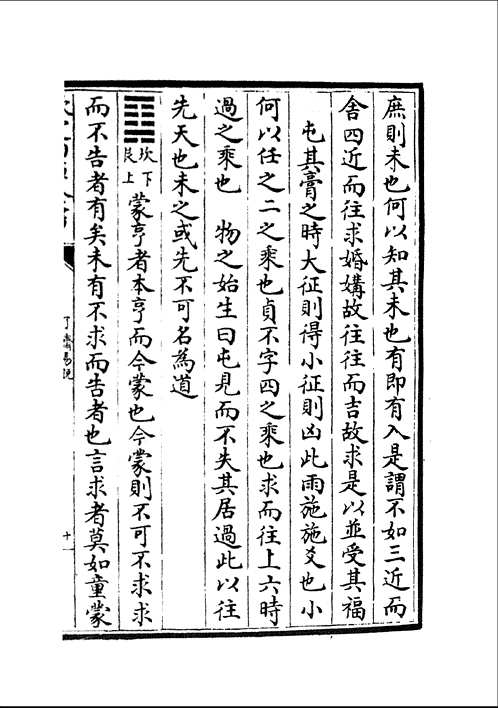 庶則未也何以知其未也有即有入是謂不如三近而
舍四近而往求婚媾故往往而吉故求是以並受其福
屯其膏之時大征則得小征則凶此雨施施爻也小
何以任之二之乘也貞不字四之乘也求而往上六時
過之乘也 物之始生曰屯見而不失其居過此以往
先天也未之或先不可名為道
䷃坎下艮上蒙亨者本亨而今蒙也今蒙則不可不求求
而不告者有矣未有不求而告者也言求者莫如童蒙
易說
十一